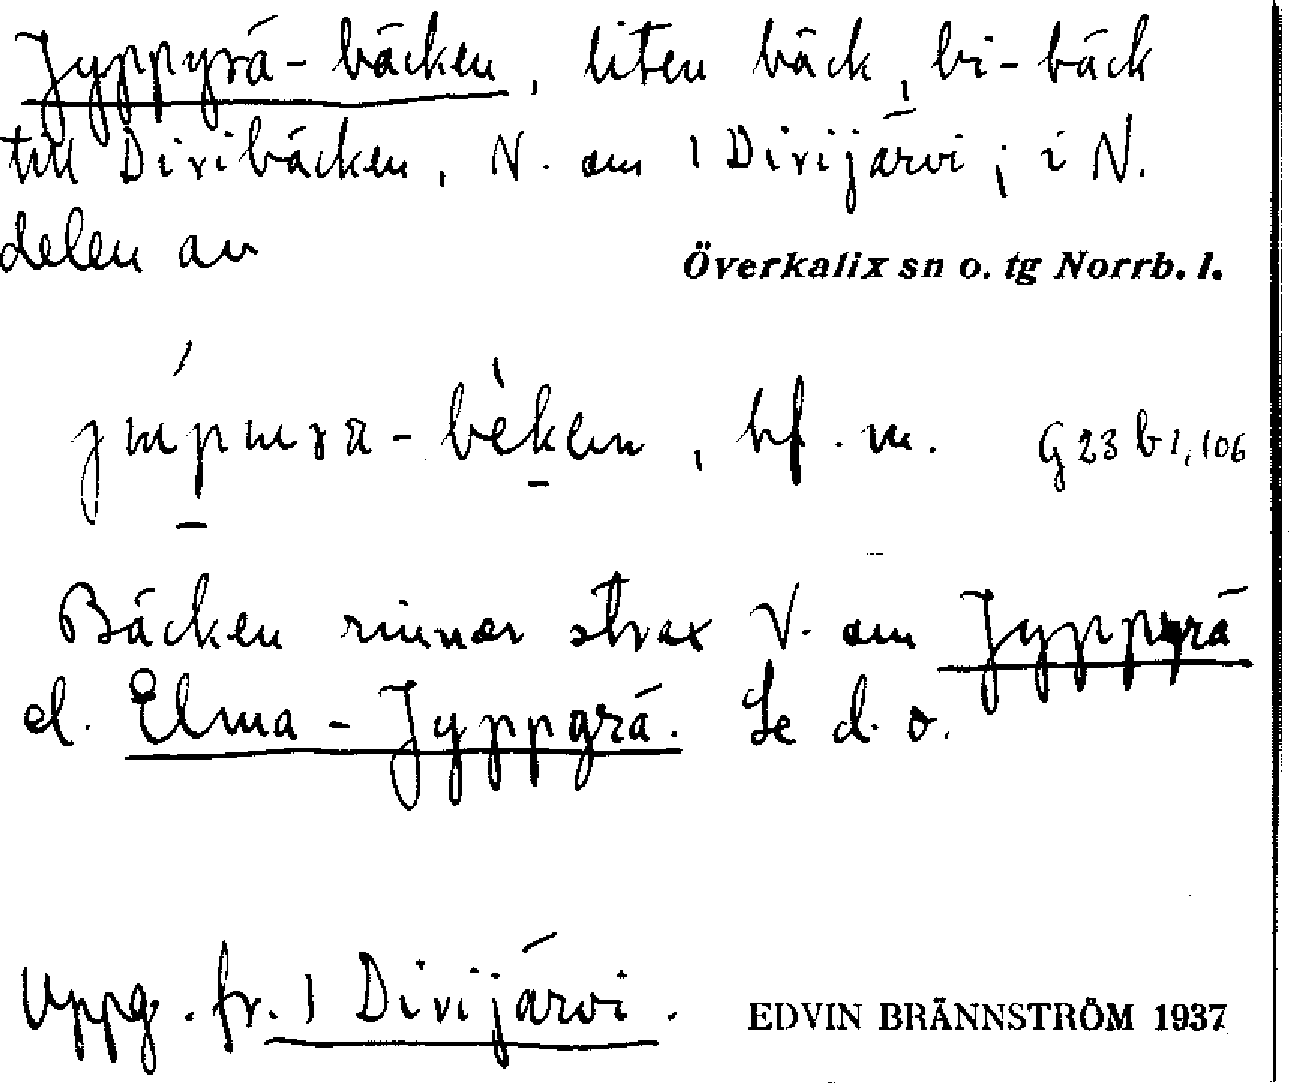 Jyppyrä-bäcken, liten bäck, bi-bäck
till Divibäcken, N. om 1 Divijärvi; i N.
delen av
Överkalix sn o. tg Norrb. l.
bf. m. G 23 b 1, 106
Bäcken rinner strax V. om Jyppyrä
el. Elma-Jyppyrä. Se d. o.
Uppg. fr. 1 Divijärvi.
EDVIN BRÄNNSTRÖM 1937